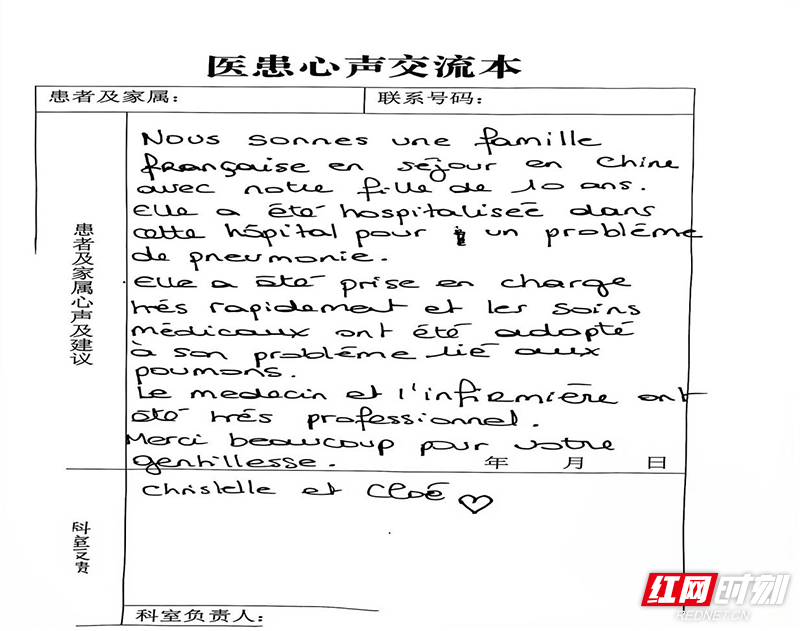 医患心声交流本
患者及家属：
联系号码：
患者及家属心声及建议
Nous sonnes une famille
française en séjour en Chine
avec notre fille de 10 ans.
Elle a été hospitalisée dans
cette hôpital pour un problème
de pneumonie.
Elle a été prise en charge
très rapidement et les soins
médicaux ont été adapté
à son problème lié aux
poumons.
Le medecin et l'infirmière ont
été très professionnel.
Merci beaucoup pour votre
gentillesse.
年 月 日
Christelle et Cloé ♡
科室反馈
科室负责人：
红网时刻
REDNET.CN